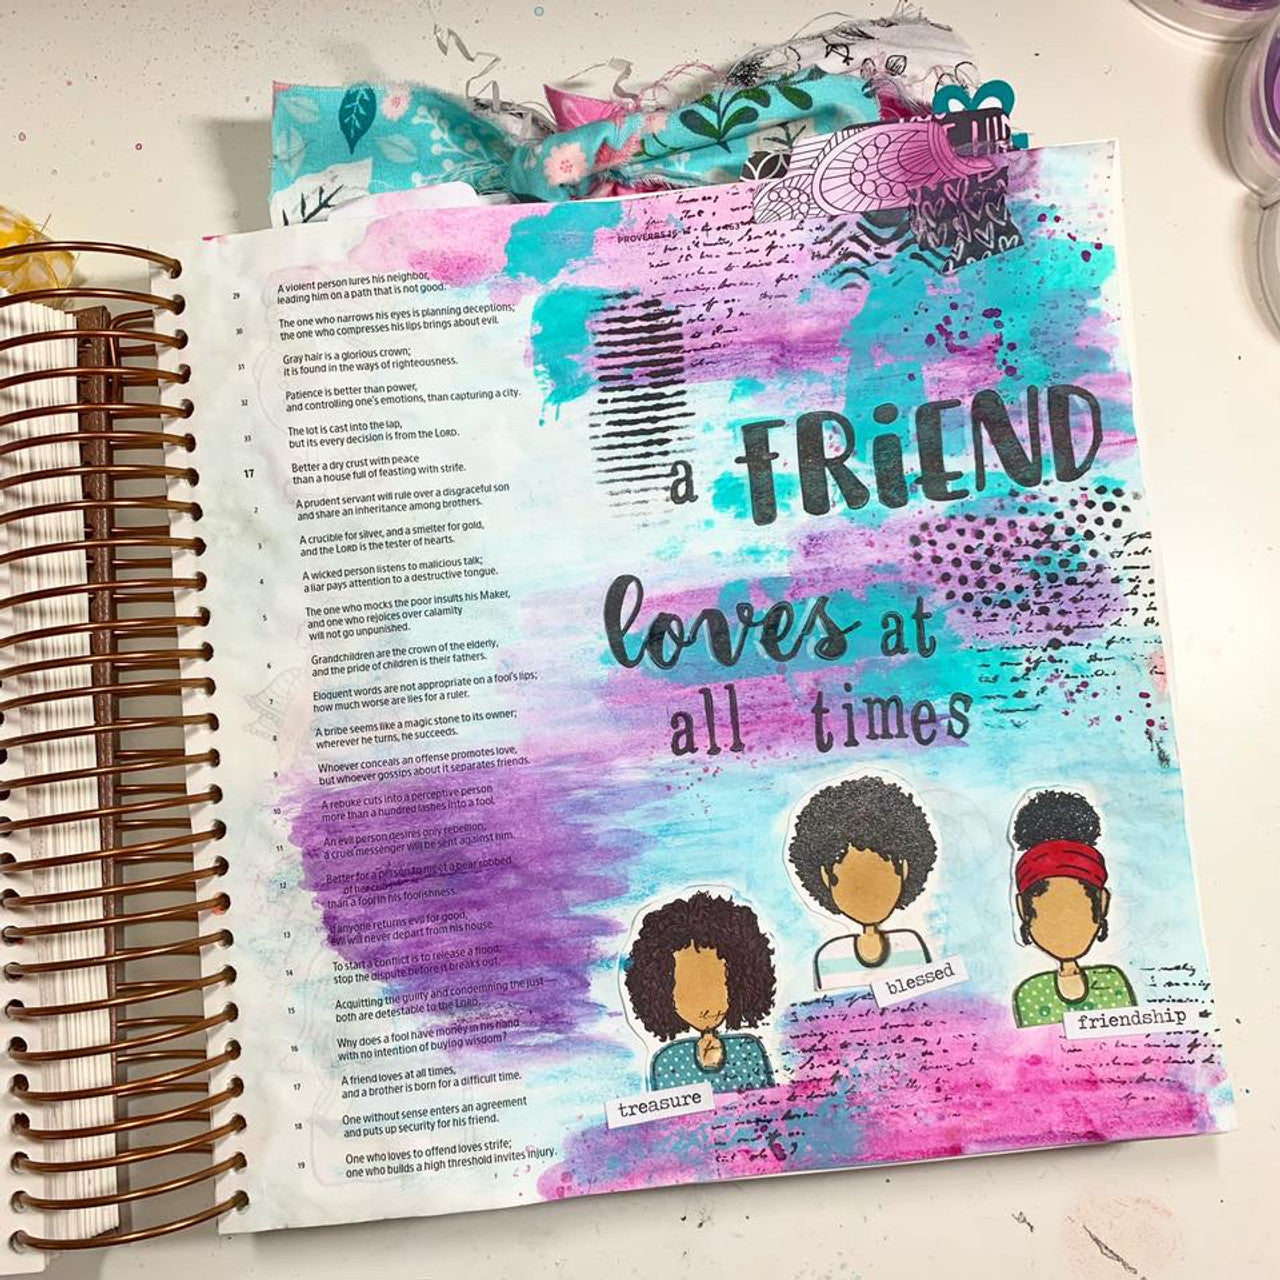 PROVERBS
29 A violent person lures his neighbor,
leading him on a path that is not good.
30 The one who narrows his eyes is planning deceptions;
the one who compresses his lips brings about evil.
31 Gray hair is a glorious crown;
it is found in the ways of righteousness.
32 Patience is better than power,
and controlling one's emotions, than capturing a city.
33 The lot is cast into the lap,
but its every decision is from the LORD.
17 Better a dry crust with peace
than a house full of feasting with strife.
2 A prudent servant will rule over a disgraceful son
and share an inheritance among brothers.
3 A crucible for silver, and a smelter for gold,
and the LORD is the tester of hearts.
4 A wicked person listens to malicious talk;
a liar pays attention to a destructive tongue.
5 The one who mocks the poor insults his Maker,
and one who rejoices over calamity
will not go unpunished.
6 Grandchildren are the crown of the elderly,
and the pride of children is their fathers.
7 Eloquent words are not appropriate on a fool's lips;
how much worse are lies for a ruler.
8 A bribe seems like a magic stone to its owner;
wherever he turns, he succeeds.
9 Whoever conceals an offense promotes love,
but whoever gossips about it separates friends.
10 A rebuke cuts into a perceptive person
more than a hundred lashes into a fool.
11 An evil person desires only rebellion;
a cruel messenger will be sent against him.
12 Better for a person to meet a bear robbed
of her cubs
than a fool in his foolishness.
13 If anyone returns evil for good,
evil will never depart from his house.
14 To start a conflict is to release a flood;
stop the dispute before it breaks out.
15 Acquitting the guilty and condemning the just—
both are detestable to the LORD.
16 Why does a fool have money in his hand
with no intention of buying wisdom?
17 A friend loves at all times,
and a brother is born for a difficult time.
18 One without sense enters an agreement
and puts up security for his friend.
19 One who loves to offend loves strife;
one who builds a high threshold invites injury.
a FRiEND
loves at
all times
blessed
friendship
treasure